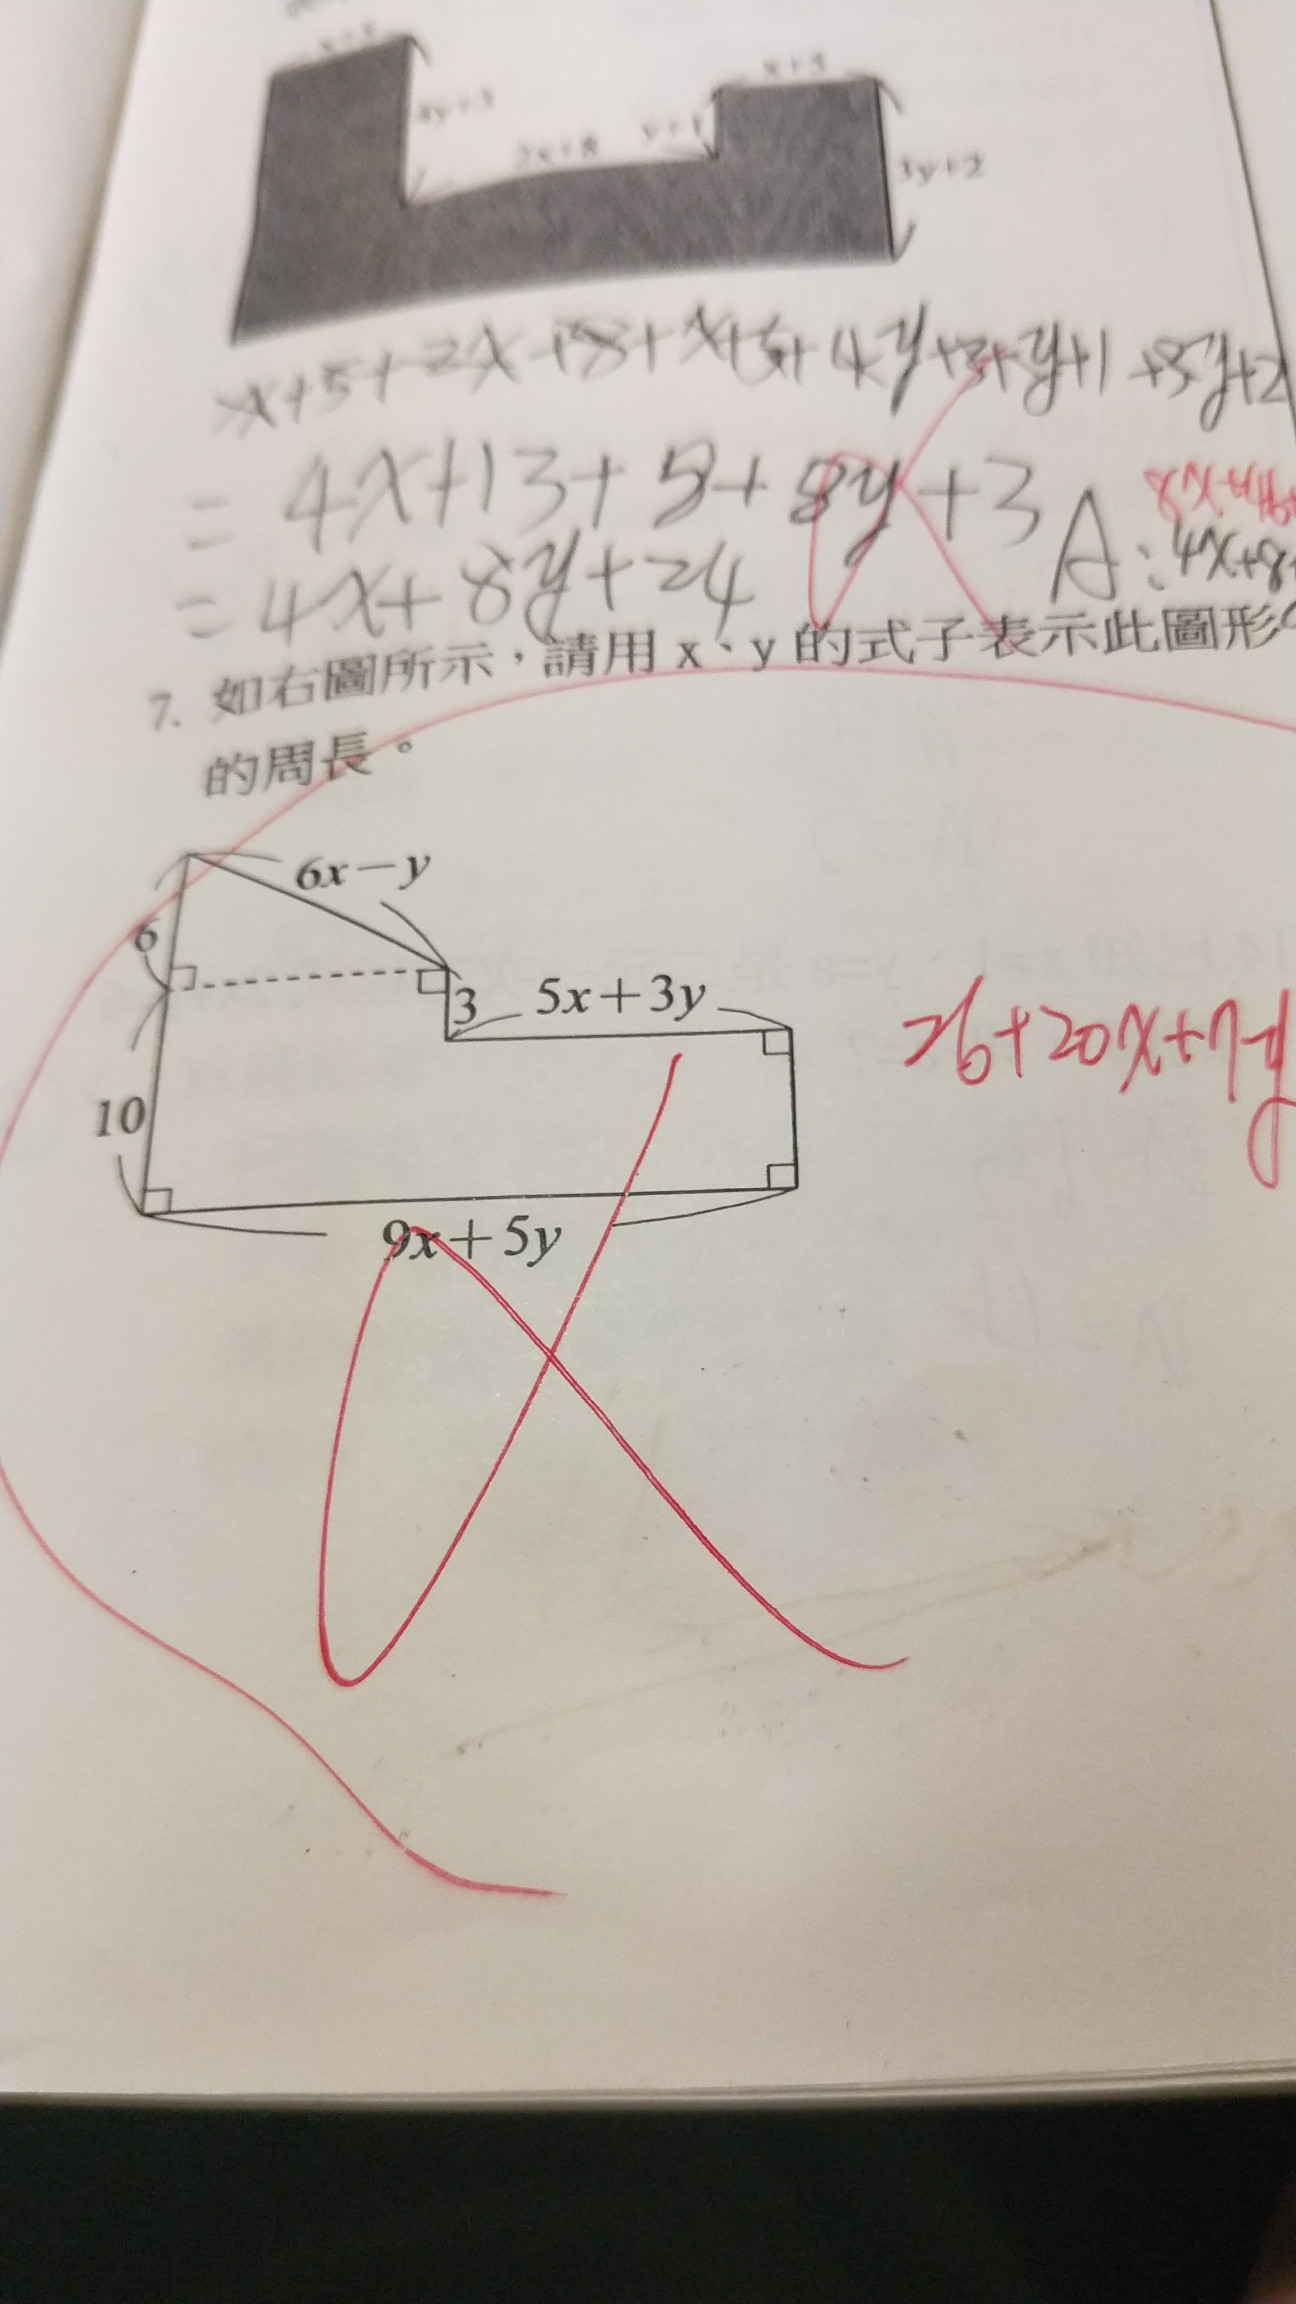 x+5
4y+3
2x+8
y+1
x+5
3y+2
x+5+2x+8+x+5+4y+3+y+1+3y+2
= 4x+13+5+8y+3
= 4x+8y+24
A:4x+8
7. 如右圖所示,請用 x、y 的式子表示此圖形
的周長。
6x−y
6
3
5x+3y
10
9x+5y
26+20x+7y